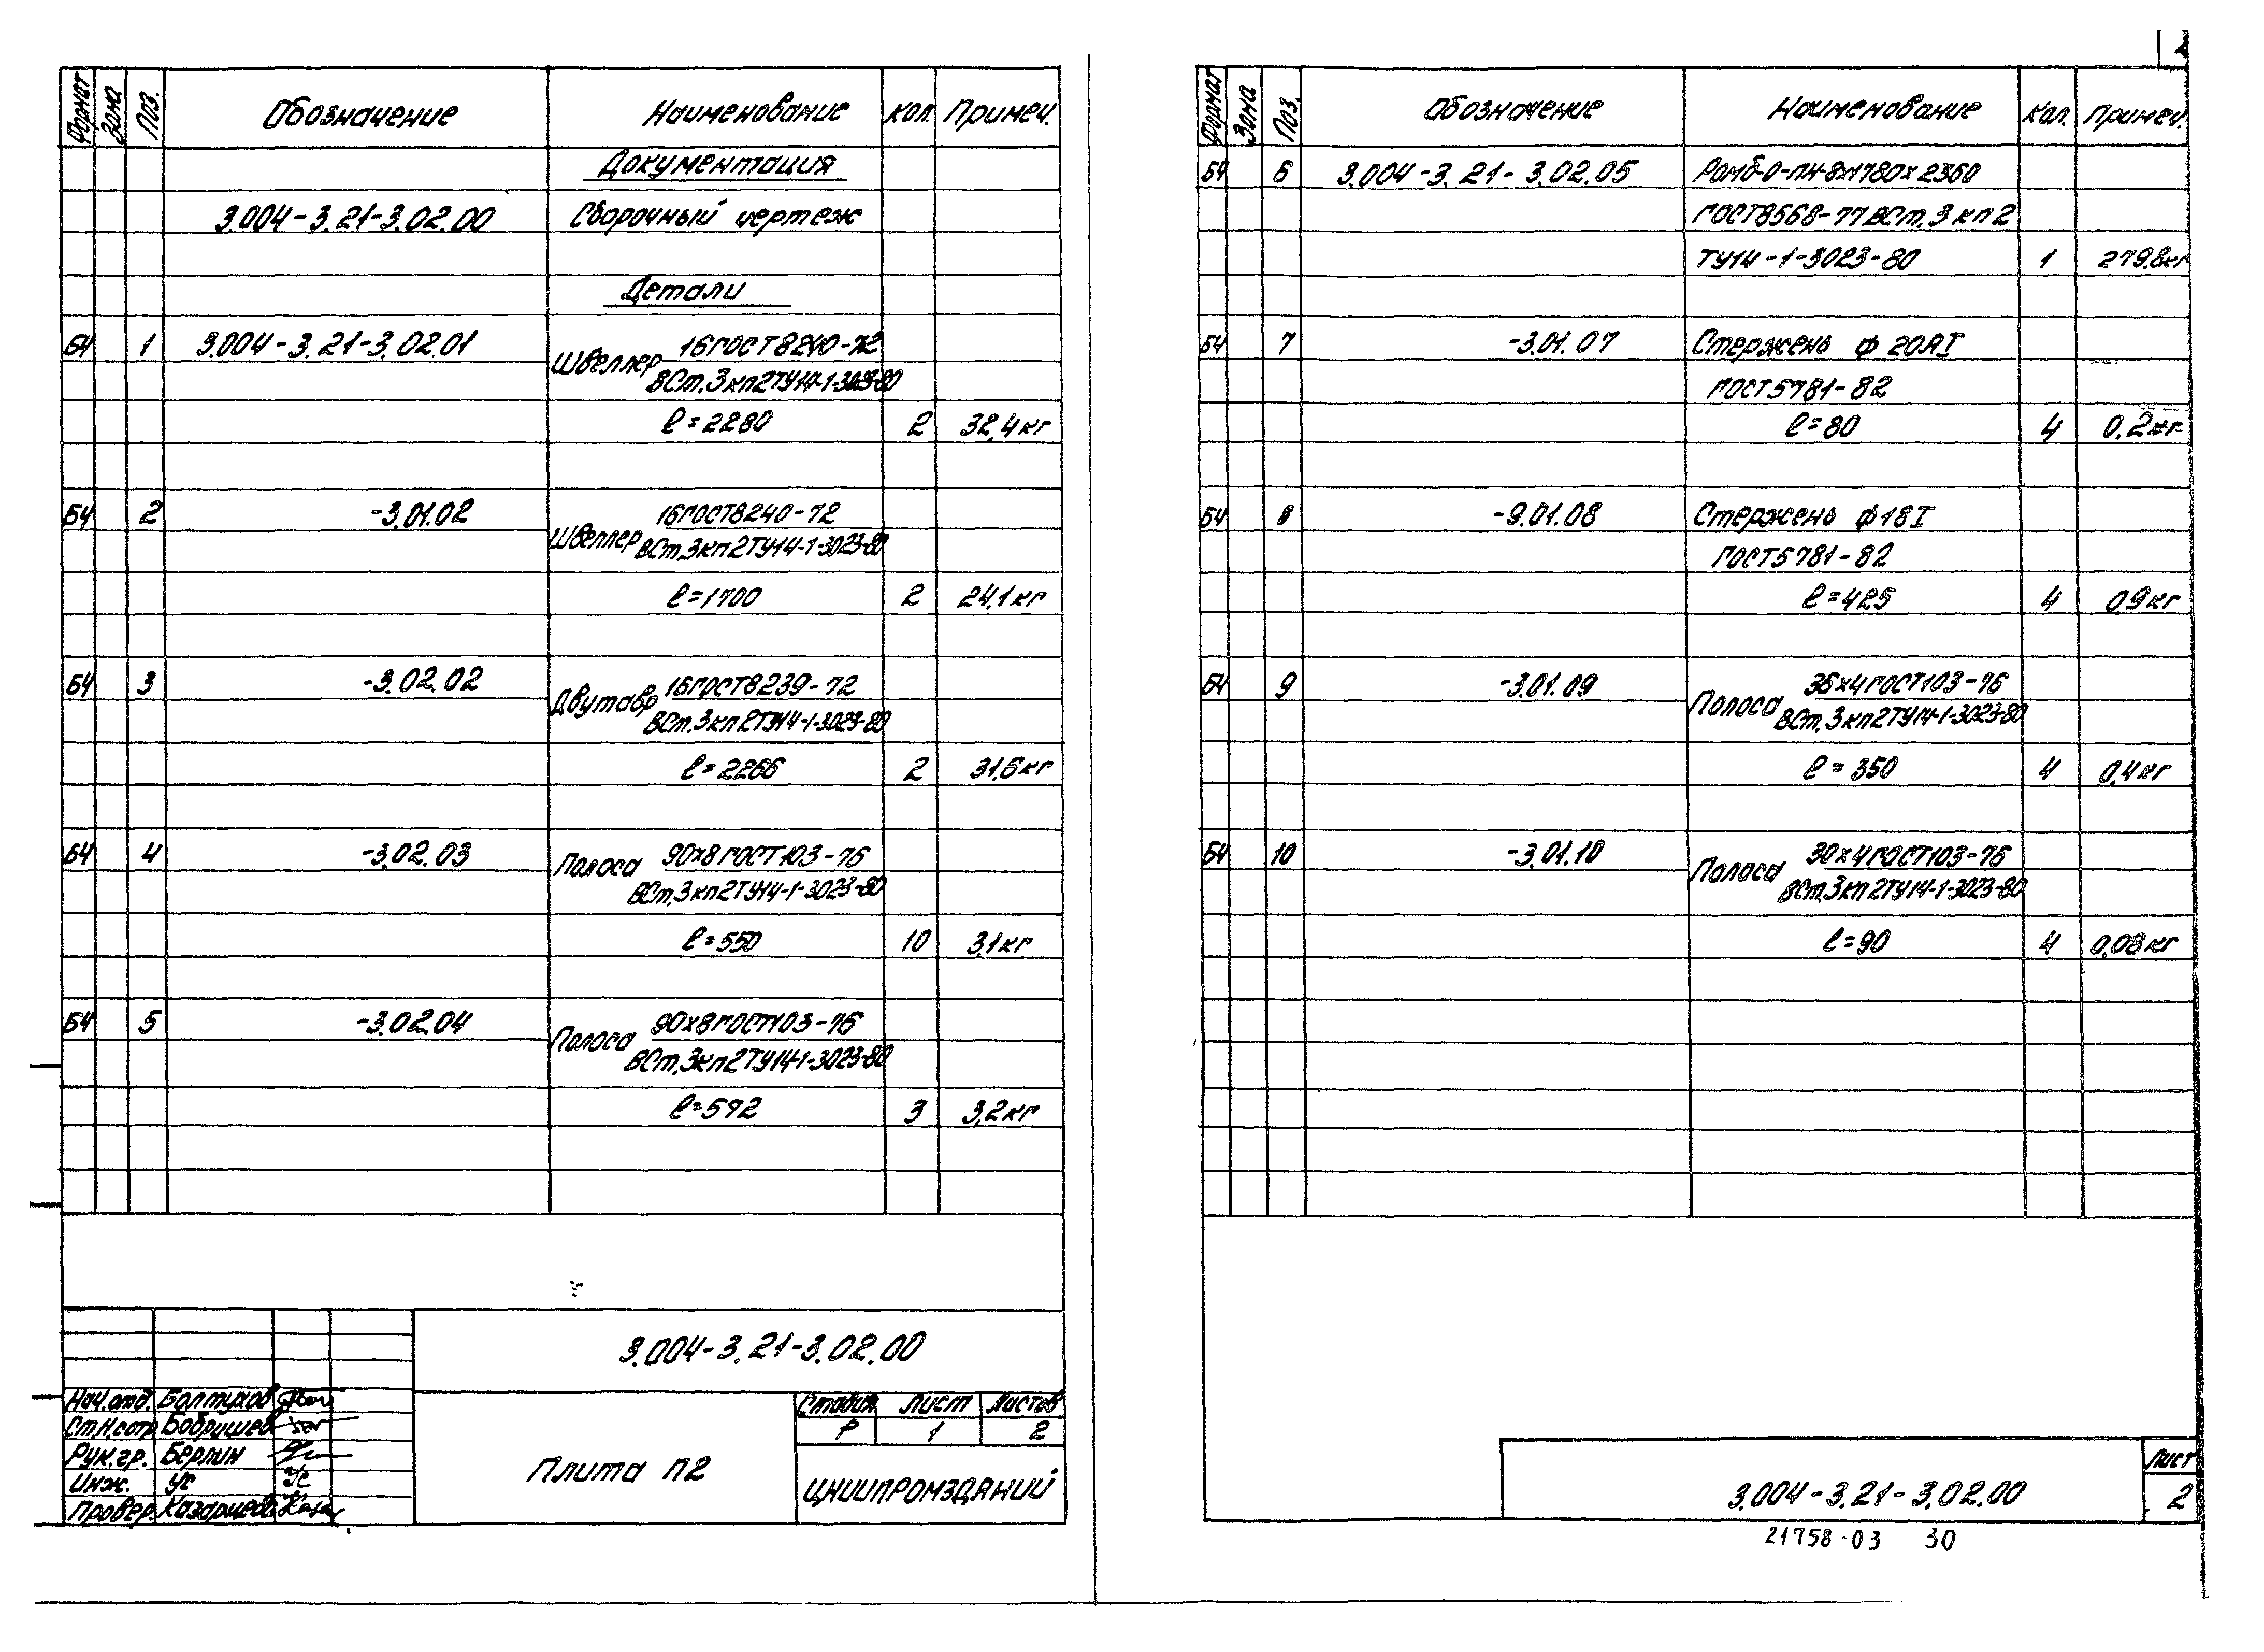 Формат Зона Поз. Обозначение Наименование Кол. Примеч.
Документация
3.004-3.21-3.02.00 Сборочный чертеж
Детали
БЧ 1 3.004-3.21-3.02.01 Швеллер 16ГОСТ8240-72
ВСт.3кп2ТУ14-1-3023-80
ℓ=2280 2 32,4кг
БЧ 2 -3.01.02 Швеллер 16ГОСТ8240-72
ВСт.3кп2ТУ14-1-3023-80
ℓ=1700 2 24,1кг
БЧ 3 -3.02.02 Двутавр 16ГОСТ8239-72
ВСт.3кп2ТУ14-1-3023-80
ℓ=2266 2 31,6кг
БЧ 4 -3.02.03 Полоса 90х8ГОСТ103-76
ВСт.3кп2ТУ14-1-3023-80
ℓ=550 10 3,1кг
БЧ 5 -3.02.04 Полоса 90х8ГОСТ103-76
ВСт.3кп2ТУ14-1-3023-80
ℓ=592 3 3,2кг
3.004-3.21-3.02.00
Нач.отд. Болтухов
Ст.н.сотр Бобришев
Рук.гр. Берлин
Инж. Ус
Провер. Казариева
Плита П2
Стадия Лист Листов
Р 1 2
ЦНИИПРОМЗДАНИЙ
Формат Зона Поз. Обозначение Наименование Кол. Примеч.
БЧ 6 3.004-3.21-3.02.05 Ромб-0-ПН-8х1780х2360
ГОСТ8568-77ВСт.3кп2
ТУ14-1-3023-80 1 279,8кг
БЧ 7 -3.01.07 Стержень ф 20АI
ГОСТ5781-82
ℓ=80 4 0,2кг
БЧ 8 -9.01.08 Стержень ф18I
ГОСТ5781-82
ℓ=425 4 0,9кг
БЧ 9 -3.01.09 Полоса 36х4ГОСТ103-76
ВСт.3кп2ТУ14-1-3023-80
ℓ=350 4 0,4кг
БЧ 10 -3.01.10 Полоса 30х4ГОСТ103-76
ВСт.3кп2ТУ14-1-3023-80
ℓ=90 4 0,08кг
3.004-3.21-3.02.00
Лист
2
21758-03 30